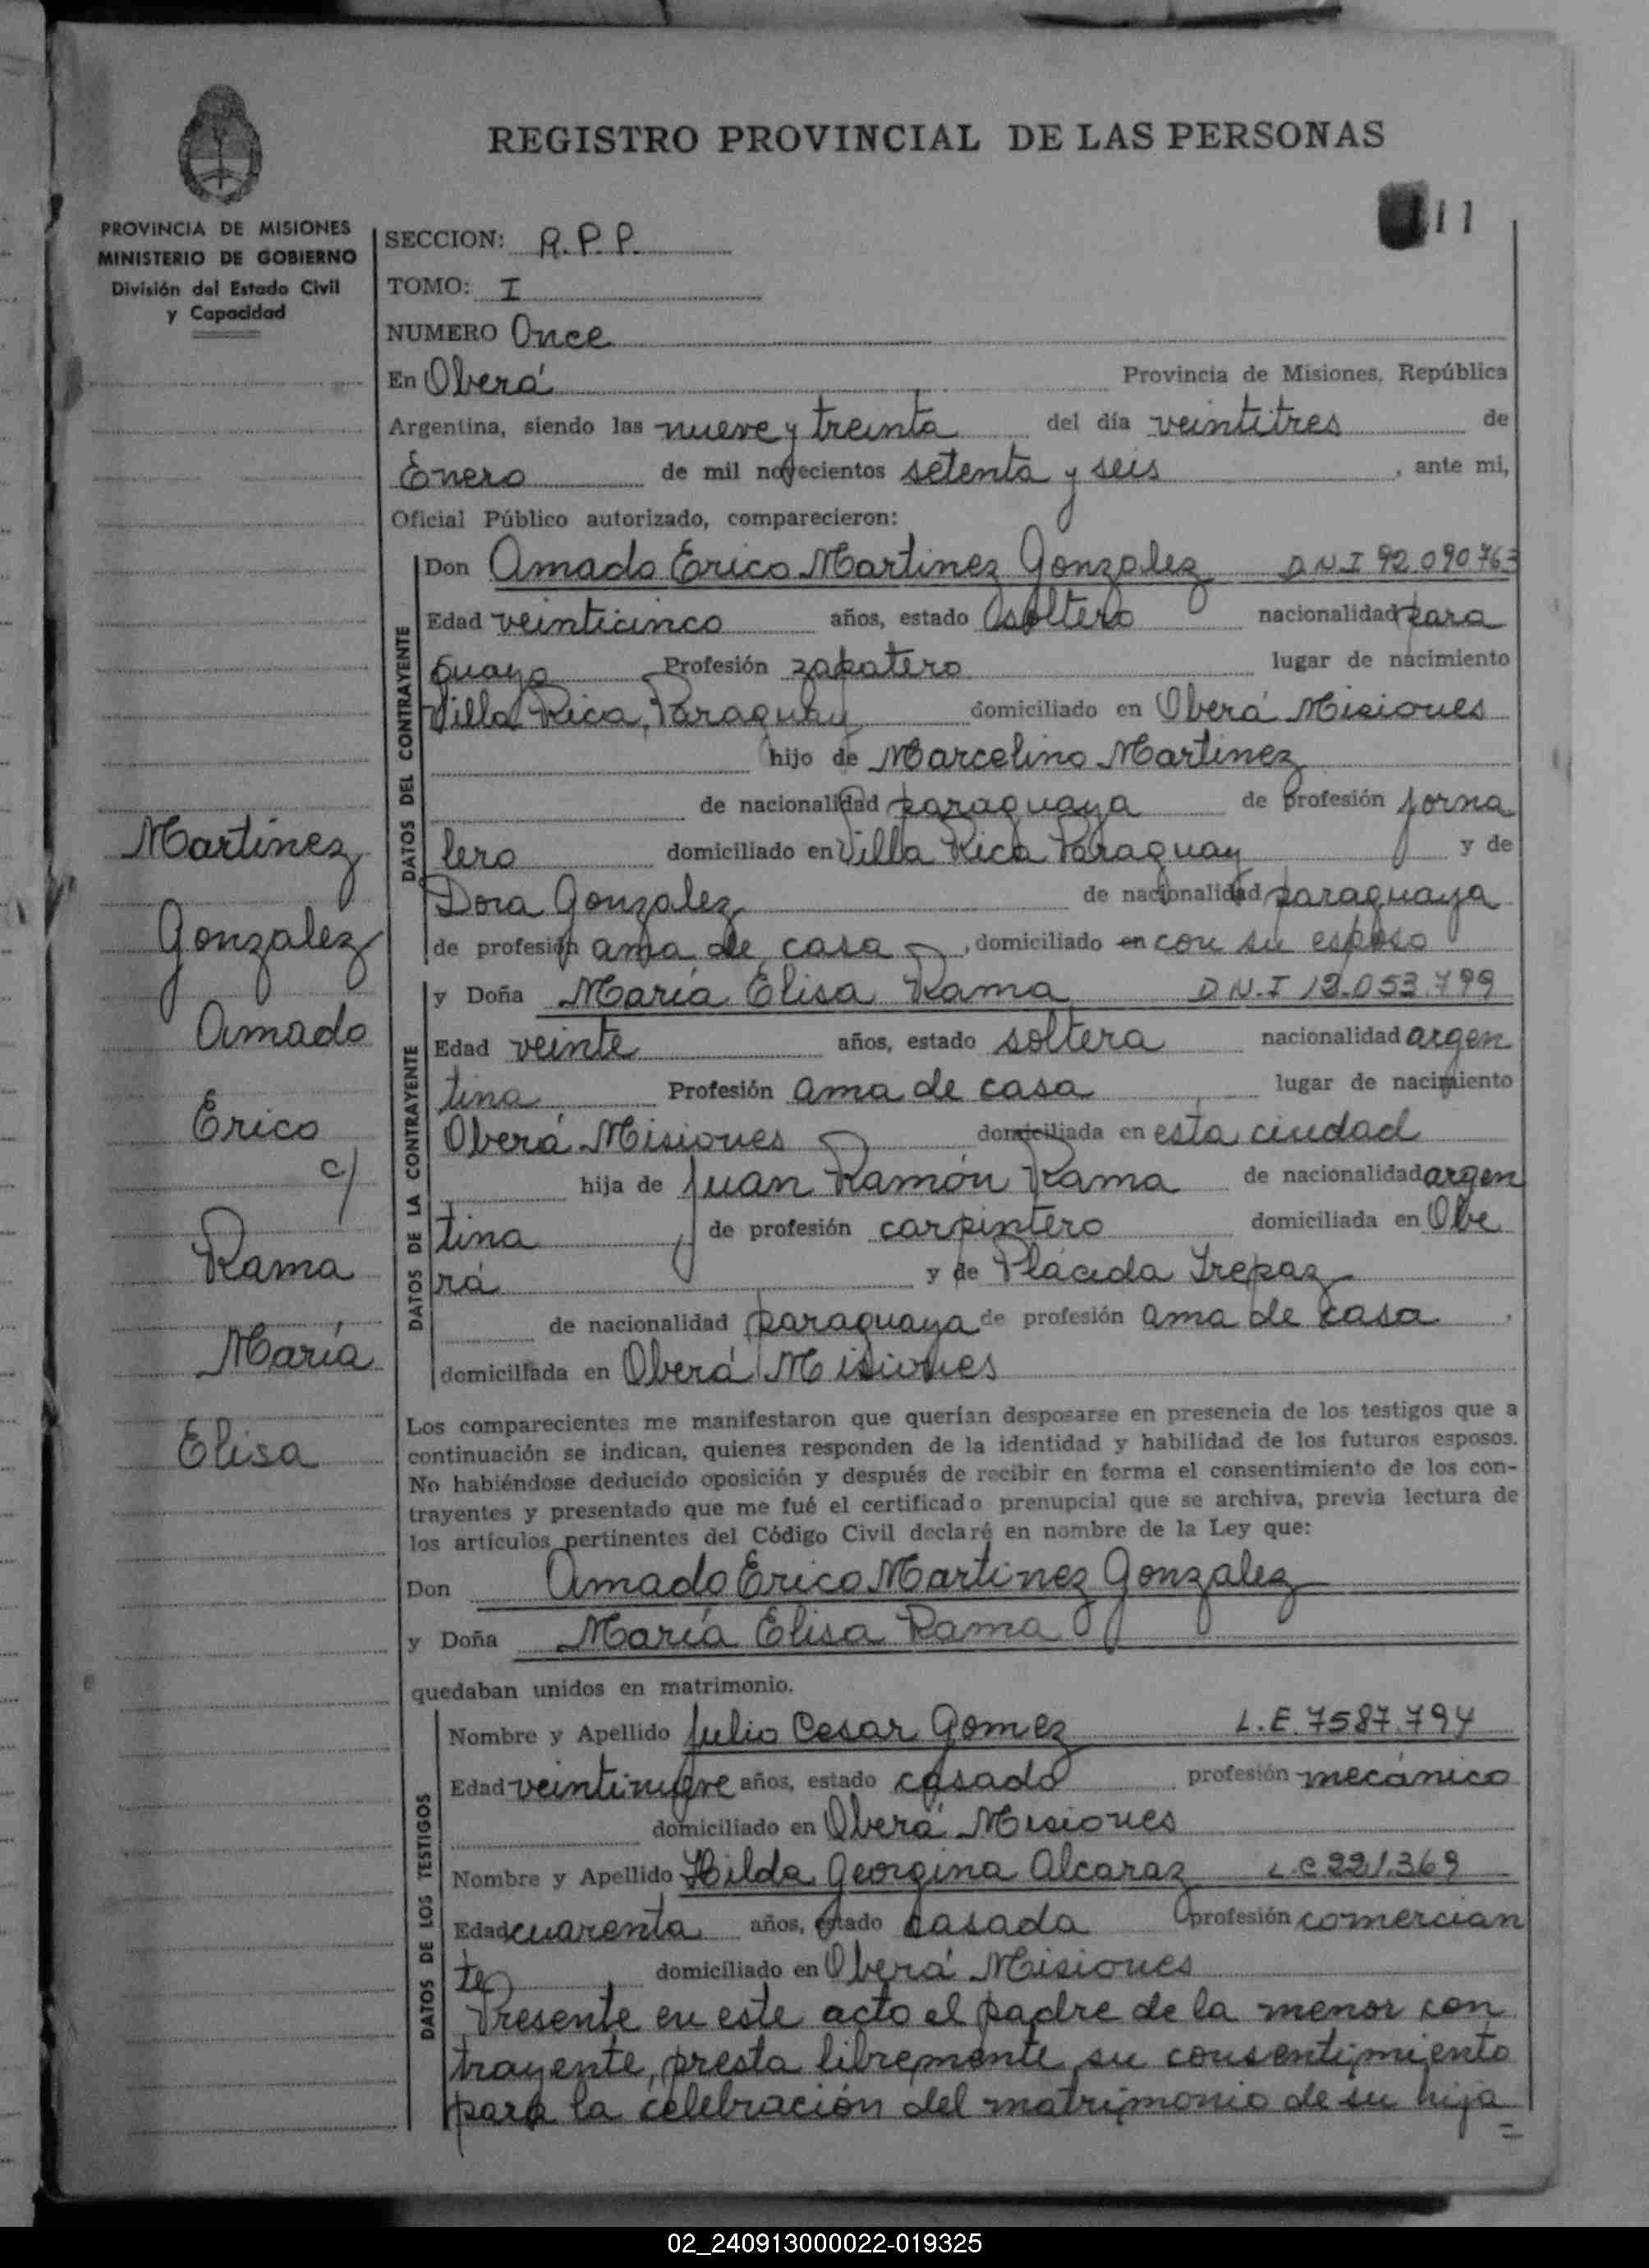 REGISTRO PROVINCIAL DE LAS PERSONAS
11
PROVINCIA DE MISIONES
MINISTERIO DE GOBIERNO
División del Estado Civil
y Capacidad
SECCION: A.P.P.
TOMO: I
NUMERO Once
En Oberá Provincia de Misiones, República
Argentina, siendo las nueve y treinta del día veintitres de
Enero de mil novecientos setenta y seis, ante mi,
Oficial Público autorizado, comparecieron:
DATOS DEL CONTRAYENTE
Don Amado Erico Martinez Gonzalez D.N.I 92.090.763
Edad veinticinco años, estado soltero nacionalidad para
guaya Profesión zapatero lugar de nacimiento
Villa Rica, Paraguay domiciliado en Oberá Misiones
hijo de Marcelino Martinez
de nacionalidad paraguaya de profesión jorna
lero domiciliado en Villa Rica Paraguay y de
Dora Gonzalez de nacionalidad paraguaya
de profesión ama de casa, domiciliado en con su esposo
DATOS DE LA CONTRAYENTE
y Doña María Elisa Rama D.N.I 12.053.799
Edad veinte años, estado soltera nacionalidad argen
tina Profesión ama de casa lugar de nacimiento
Oberá Misiones domiciliada en esta ciudad
hija de Juan Ramón Rama de nacionalidad argen
tina de profesión carpintero domiciliada en Obe
rá y de Plácida Trepaz
de nacionalidad paraguaya de profesión ama de casa.
domiciliada en Oberá Misiones
Martinez
Gonzalez
Amado
Erico
c/
Rama
María
Elisa
Los comparecientes me manifestaron que querían desposarse en presencia de los testigos que a
continuación se indican, quienes responden de la identidad y habilidad de los futuros esposos.
No habiéndose deducido oposición y después de recibir en forma el consentimiento de los con-
trayentes y presentado que me fué el certificado prenupcial que se archiva, previa lectura de
los artículos pertinentes del Código Civil declaré en nombre de la Ley que:
Don Amado Erico Martinez Gonzalez
y Doña María Elisa Rama
quedaban unidos en matrimonio.
DATOS DE LOS TESTIGOS
Nombre y Apellido Julio Cesar Gomez L.E. 7587.794
Edad veintinueve años, estado casado profesión mecánico
domiciliado en Oberá Misiones
Nombre y Apellido Hilda Georgina Alcaraz L.C 221.369
Edad cuarenta años, estado casada profesión comercian
te domiciliado en Oberá Misiones
Presente en este acto el padre de la menor con
trayente, presta libremente su consentimiento
para la celebración del matrimonio de su hija
02_240913000022-019325